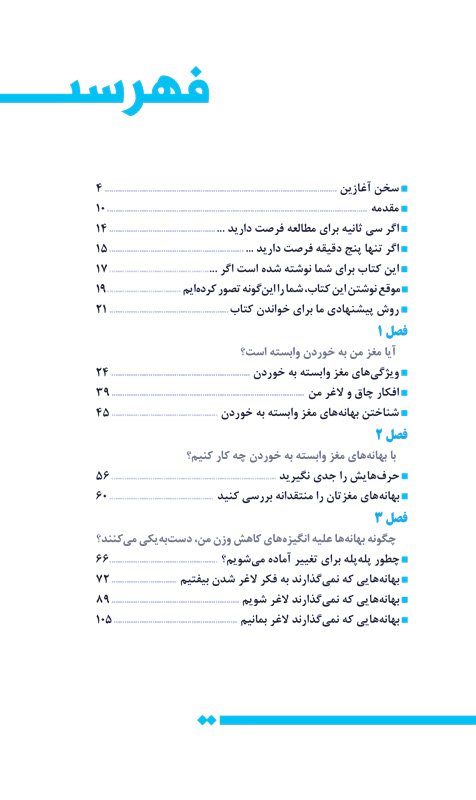 فهرست
سخن آغازین ۴
مقدمه ۱۰
اگر سی ثانیه برای مطالعه فرصت دارید ... ۱۴
اگر تنها پنج دقیقه فرصت دارید ... ۱۵
این کتاب برای شما نوشته شده است اگر ... ۱۷
موقع نوشتن این کتاب، شما را این‌گونه تصور کرده‌ایم ۱۹
روش پیشنهادی ما برای خواندن کتاب ۲۱
فصل ۱
آیا مغز من به خوردن وابسته است؟
ویژگی‌های مغز وابسته به خوردن ۲۴
افکار چاق و لاغر من ۳۹
شناختن بهانه‌های مغز وابسته به خوردن ۴۵
فصل ۲
با بهانه‌های مغز وابسته به خوردن چه کار کنیم؟
حرف‌هایش را جدی نگیرید ۵۶
بهانه‌های مغزتان را منتقدانه بررسی کنید ۶۰
فصل ۳
چگونه بهانه‌ها علیه انگیزه‌های کاهش وزن من، دست‌به‌یکی می‌کنند؟
چطور پله‌پله برای تغییر آماده می‌شویم؟ ۶۶
بهانه‌هایی که نمی‌گذارند به فکر لاغر شدن بیفتیم ۷۲
بهانه‌هایی که نمی‌گذارند لاغر شویم ۸۹
بهانه‌هایی که نمی‌گذارند لاغر بمانیم ۱۰۵